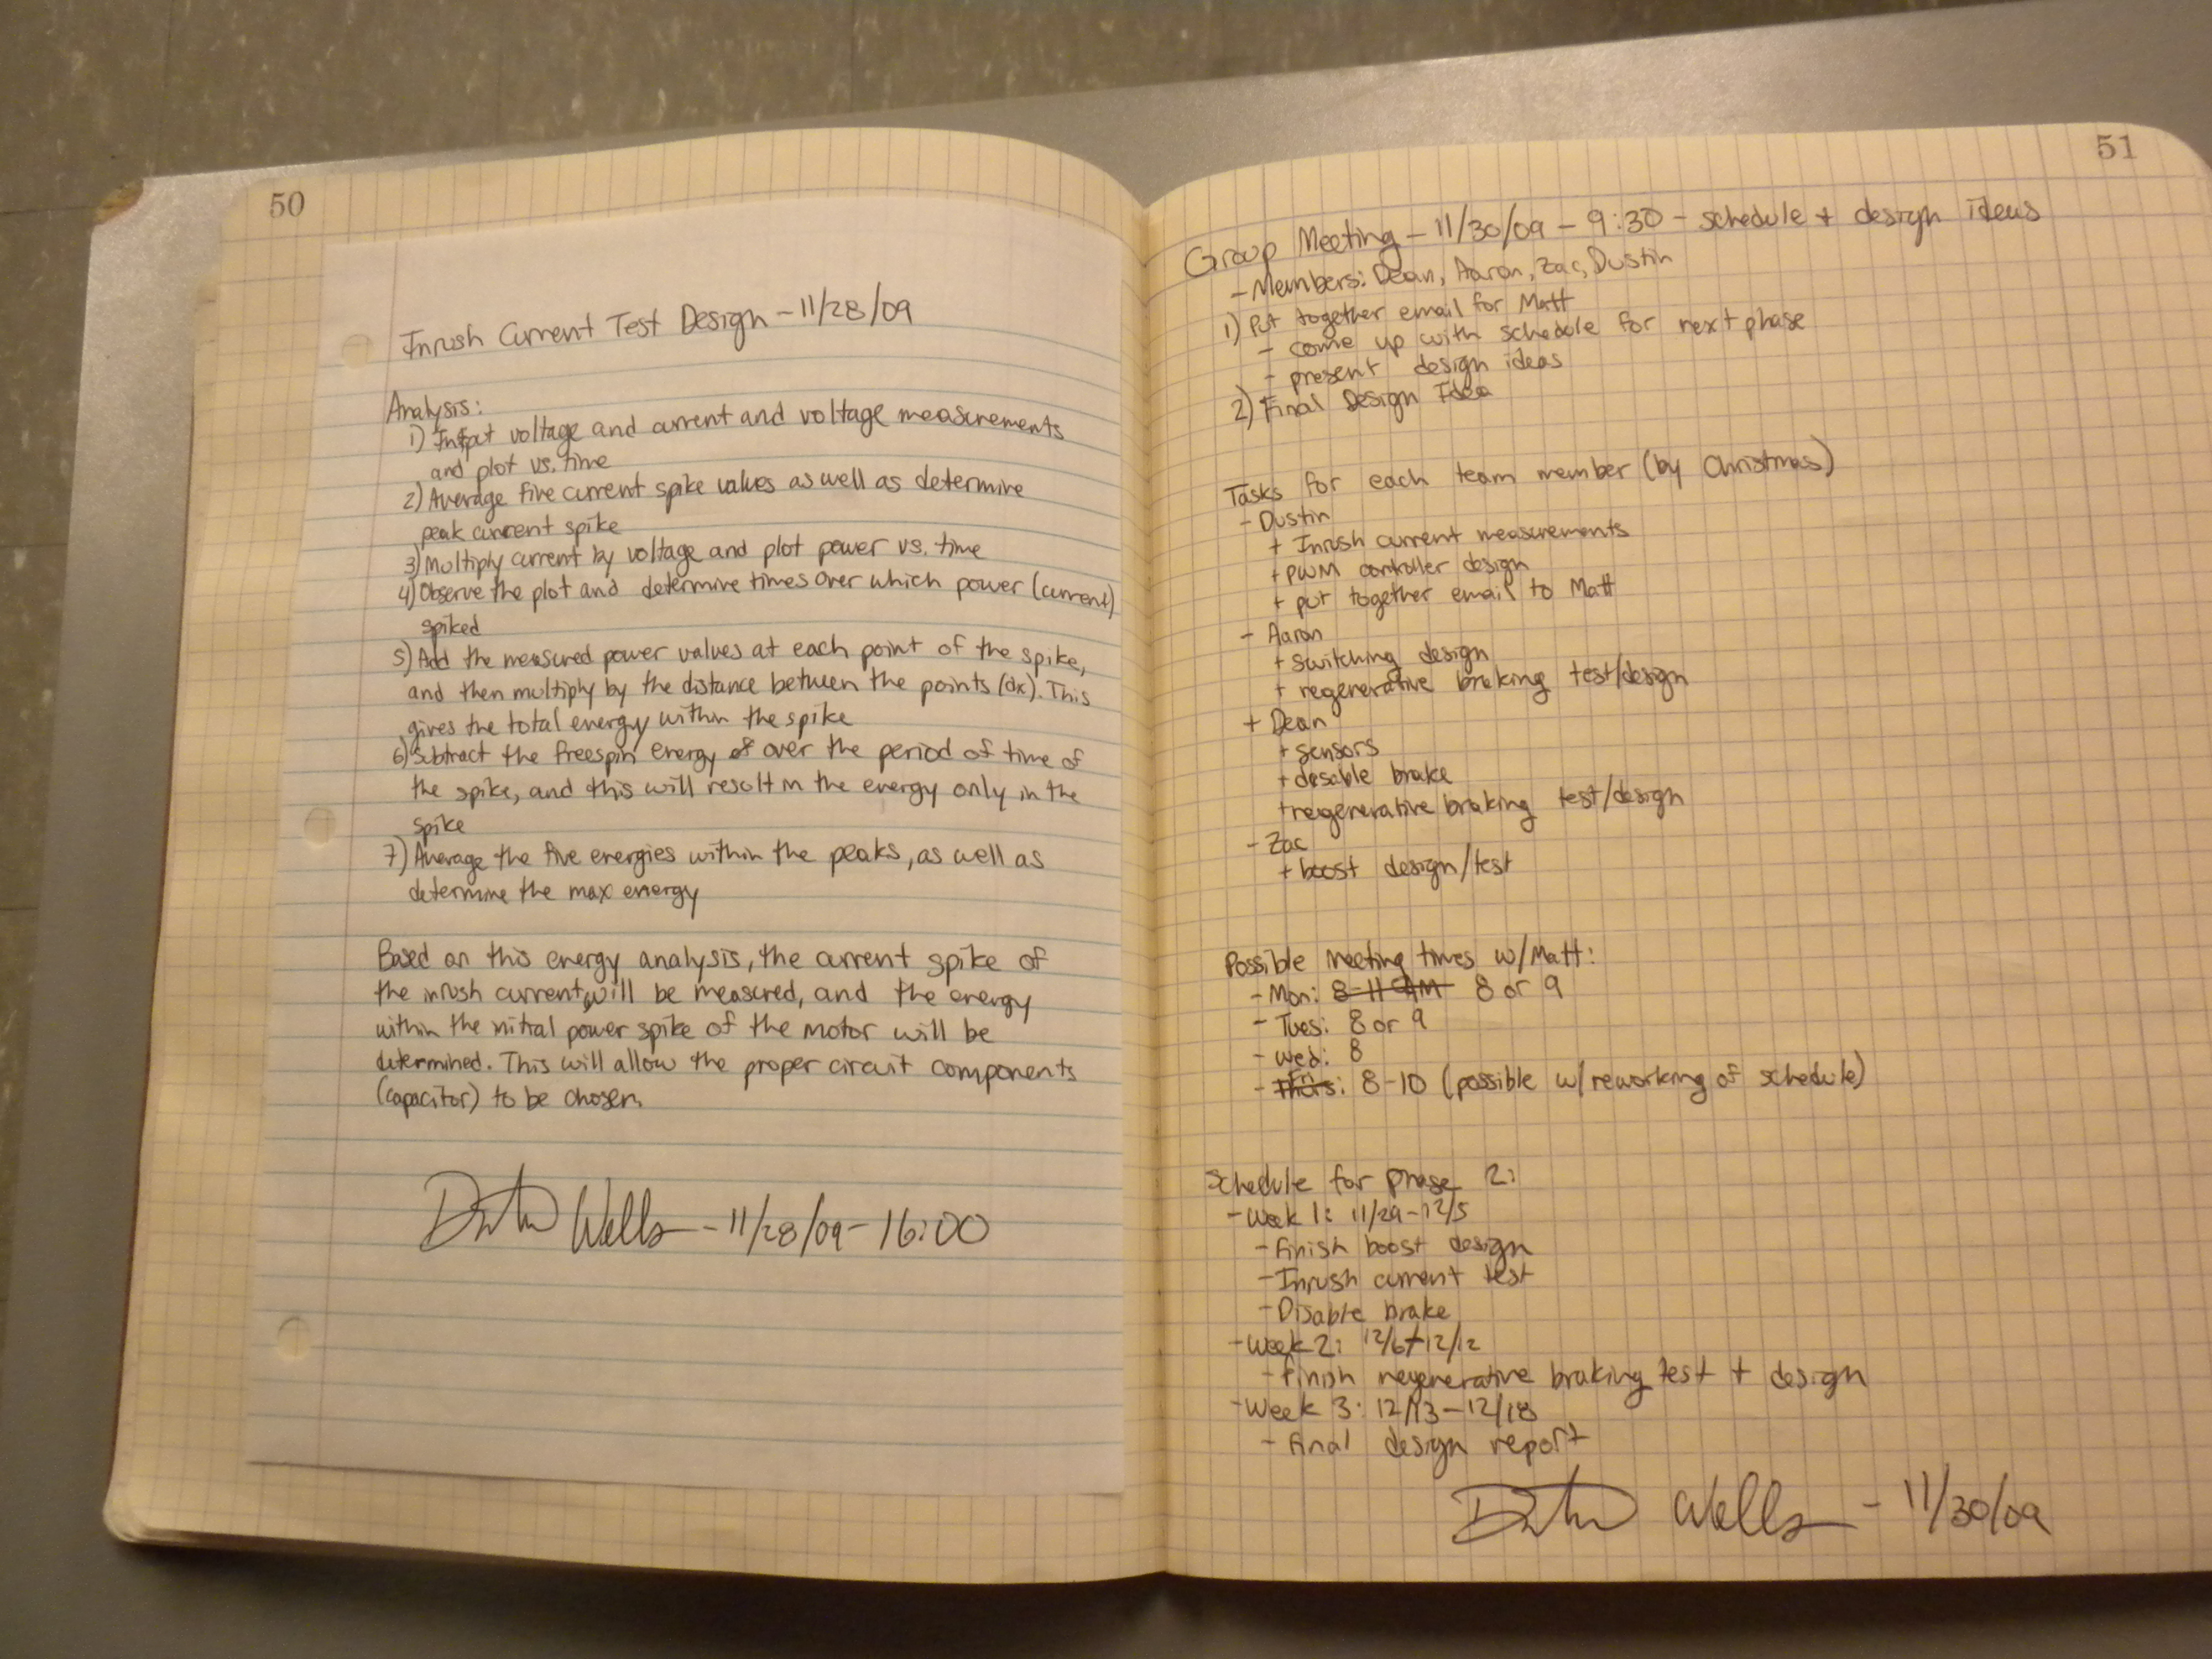 50
Inrush Current Test Design - 11/28/09
Analysis:
1) Input voltage and current and voltage measurements
and plot vs. time
2) Average five current spike values as well as determine
peak current spike
3) Multiply current by voltage and plot power vs. time
4) Observe the plot and determine times over which power (current)
spiked
5) Add the measured power values at each point of the spike,
and then multiply by the distance between the points (dx). This
gives the total energy within the spike
6) Subtract the freespin energy of over the period of time of
the spike, and this will result in the energy only in the
spike
7) Average the five energies within the peaks, as well as
determine the max energy
Based on this energy analysis, the current spike of
the inrush current will be measured, and the energy
within the initial power spike of the motor will be
determined. This will allow the proper circuit components
(capacitor) to be chosen.
Dustin Wells - 11/28/09 - 16:00
51
Group Meeting - 11/30/09 - 9:30 - schedule + design ideas
- Members: Dean, Aaron, Zac, Dustin
1) Put together email for Matt
- come up with schedule for next phase
- present design ideas
2) Final Design Idea
Tasks for each team member (by Christmas)
- Dustin
+ Inrush current measurements
+ PWM controller design
+ put together email to Matt
- Aaron
+ switching design
+ regenerative braking test/design
+ Dean
+ sensors
+ disable brake
+ regenerative braking test/design
- Zac
+ boost design/test
Possible Meeting times w/Matt:
- Mon: 8-11 AM 8 or 9
- Tues: 8 or 9
- Wed: 8
- Thurs Fri: 8-10 (possible w/ reworking of schedule)
Schedule for phase 2:
- Week 1: 11/29-12/5
- Finish boost design
- Inrush current test
- Disable brake
- Week 2: 12/6-12/12
- finish regenerative braking test + design
- Week 3: 12/13-12/18
- final design report
Dustin Wells - 11/30/09